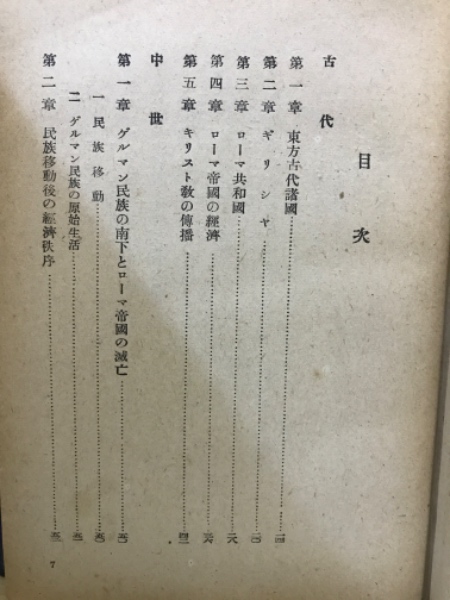 目次
古代
第一章 東方古代諸國
第二章 ギリシヤ
第三章 ローマ共和國
第四章 ローマ帝國の經濟
第五章 キリスト敎の傳播
中世
第一章 ゲルマン民族の南下とローマ帝國の滅亡
一 民族移動
二 ゲルマン民族の原始生活
第二章 民族移動後の經濟秩序
7